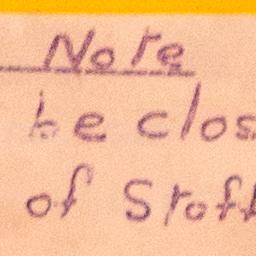 Note
be clos
of Staff